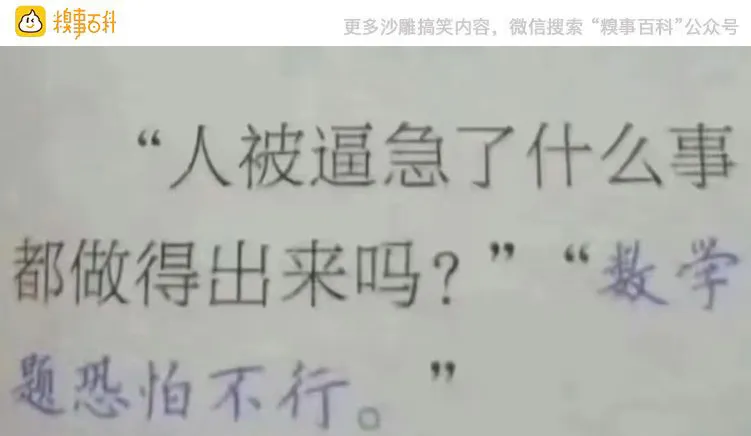 糗事百科
更多沙雕搞笑内容，微信搜索“糗事百科”公众号
“人被逼急了什么事
都做得出来吗？”“数学
题恐怕不行。”